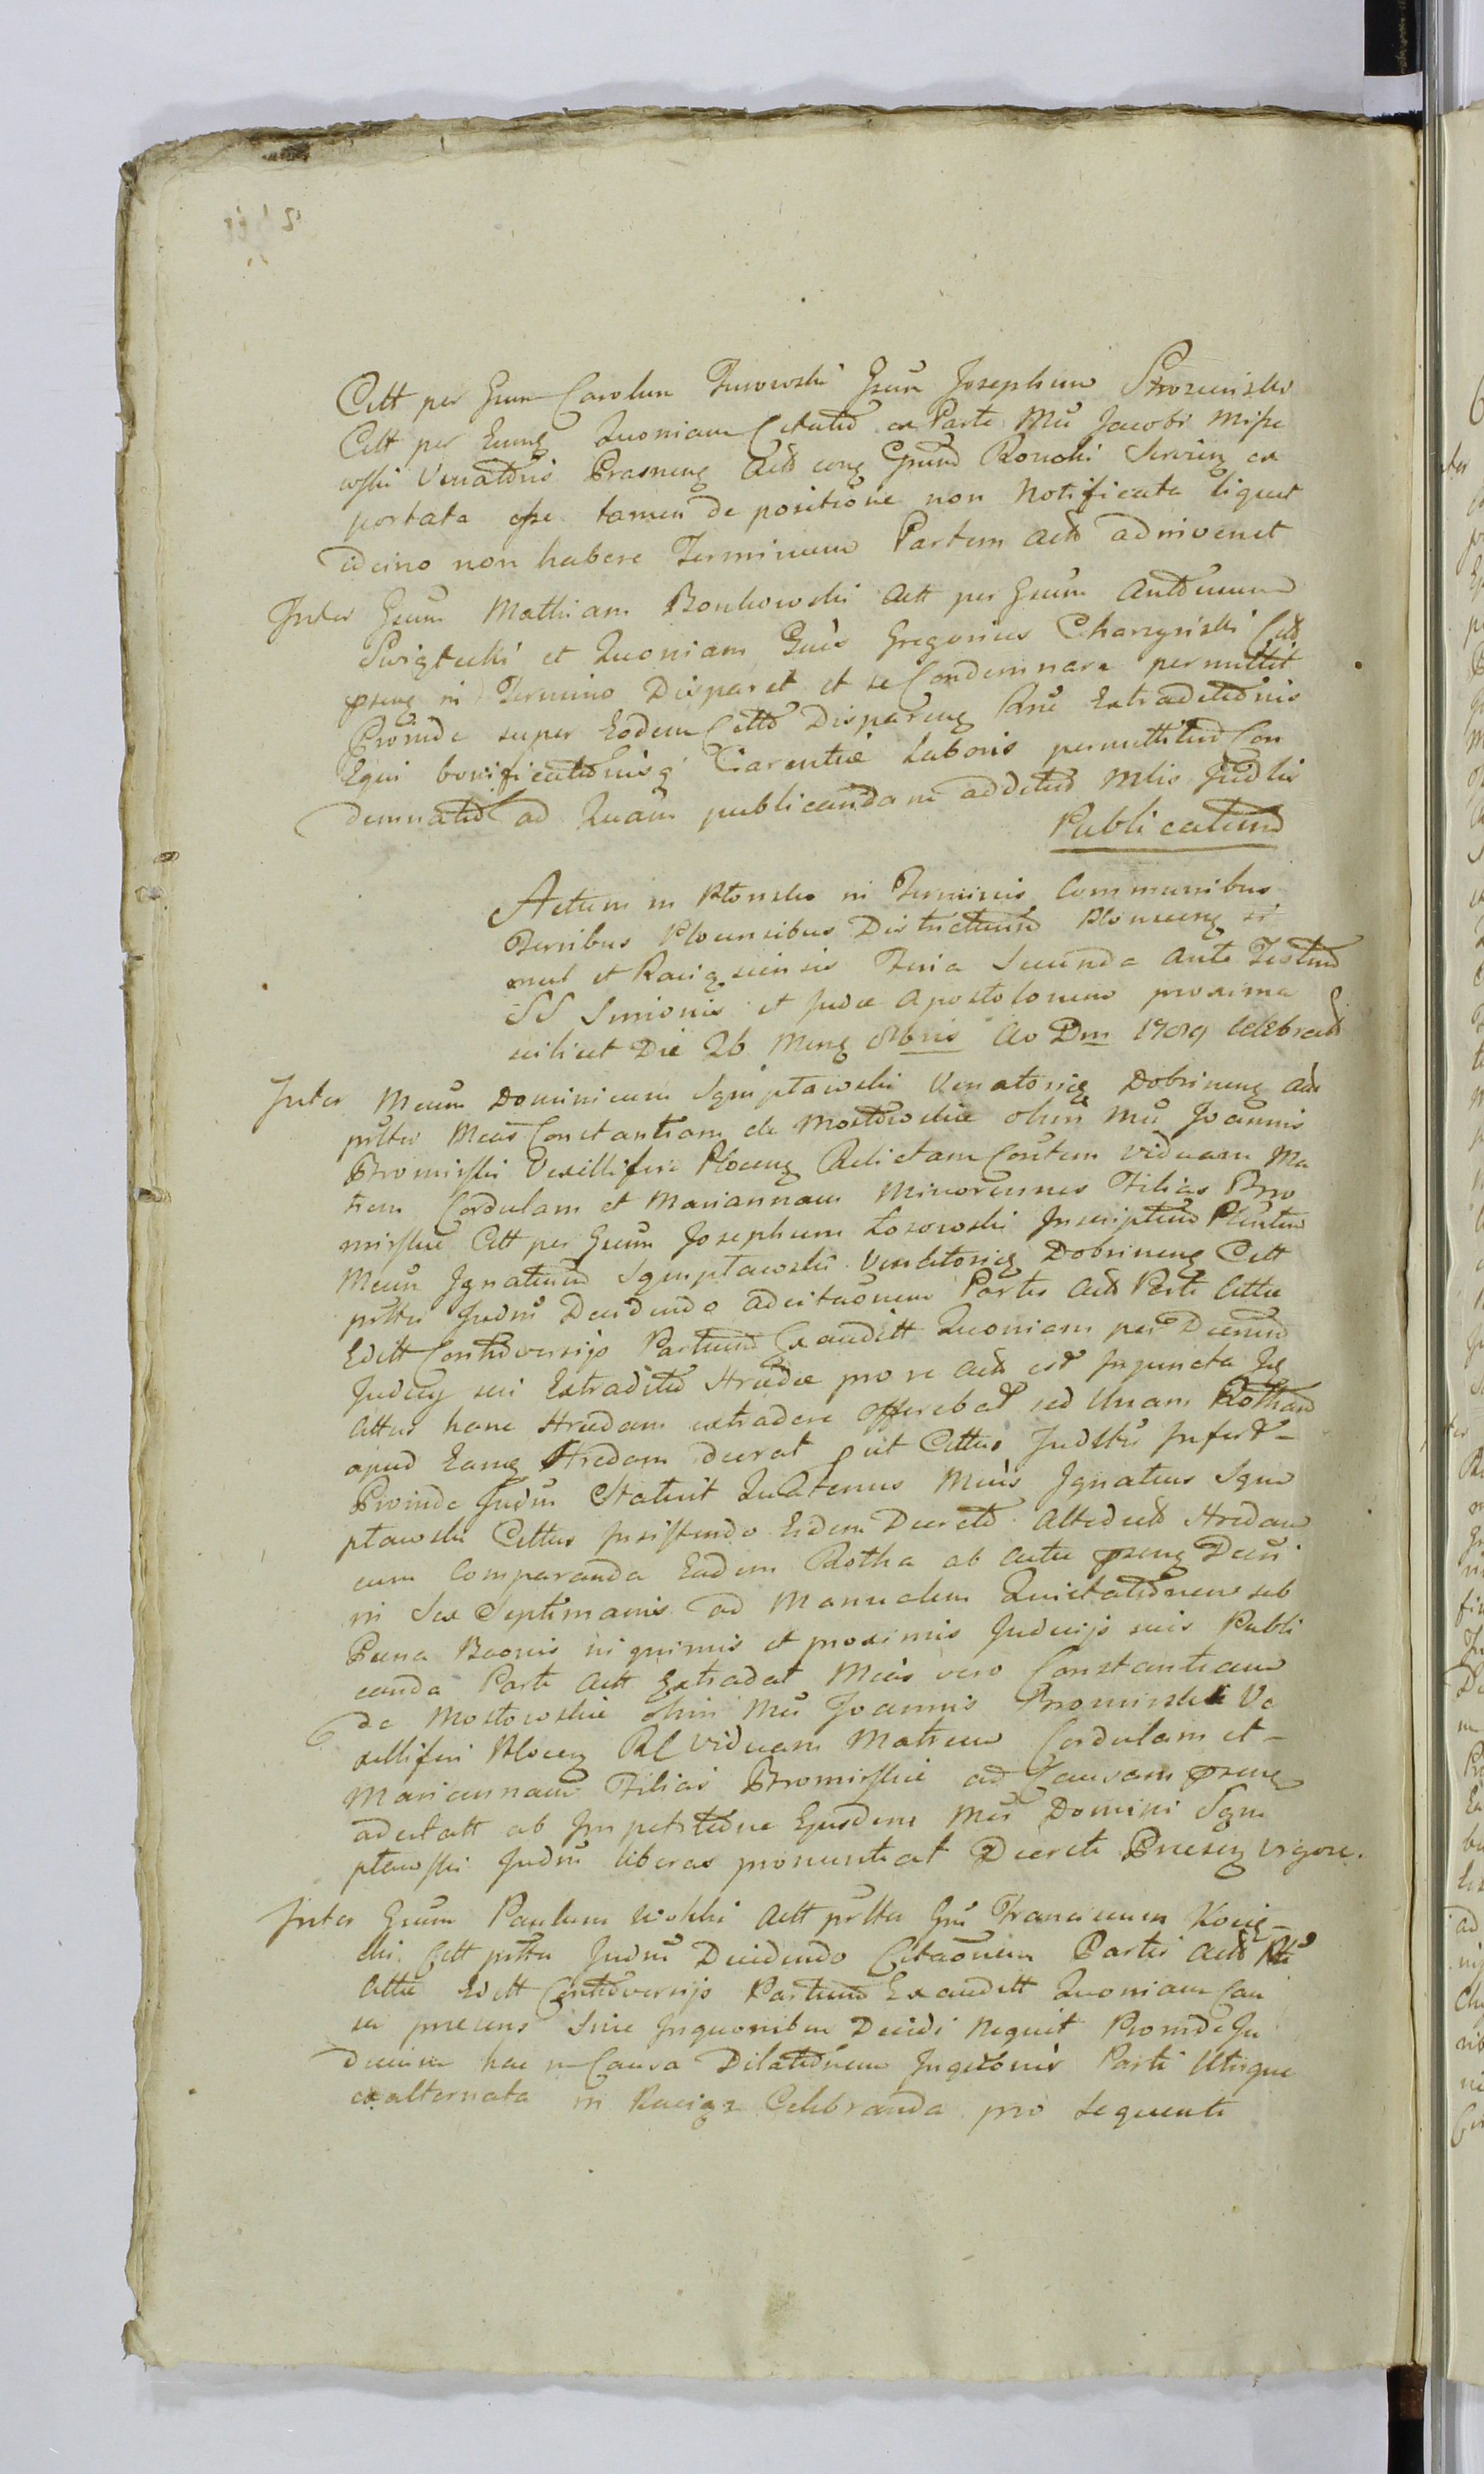 Citt per Gnum Carolum Turowski Gnum Josephum
Citt per Eumq Quoniam Citatio ex Parte Mci Jacobi Misze
wski Venatoris Prasneng Acto conq Gnum Ronoki
portata esse tamen de positione non Notificata liquet
idcirco non habere Terminum Partem Acto adinvenit
Inter Gnum Mathiam Bonkowski Act per Gnum Antonium
Swiątecki et Quoniam Gnus Gregorius Charzyński Citt
psens in Termino Disparet et se Condemnare permittit
Proinde super Eodem Citto Disparenq Pnt Extraditionis
Equi bonificationisq Carentiae Laboris permittitur Con
demnatio ad Quam publicandam additur Mlis Judlis
Publicatum
Actum in Płonsko in Terminis Communibus
Terribus Plocensibus Districtuum Płonscenq si
mul et Raciązscensis Feria Secunda Ante Festum
SS Simonis et Judae Apostolorum proxima
scilicet Die 26 Menq 8bris Ao Dni 1789 Celebrato
Inter Mcum Dominicum Sgmptawski Venatoricz Dobrinenq Act
pstte Mcas Constantiam de Mostowskie olim Mci Joannis
Bromirski Vexilliferi Plocenq Relictam Contem Viduam Ma
trem Cordulam et Mariannam Minorennes Filias Bro
mirskie Citt per Gnum Josephum Łozowski Inscriptum Plenten
Mcum Ignatium Sgmptawski Venatoricz Dobrinenq Citt
pstte Judm Decidendo adcitaonem Partis Acto Parti Citte
Editt Controversijs Partium Exauditt Quoniam per Decum
Judicy sui Extraditio Scrudae pro re Acto est Injuncta Is
Cittus hanc Scrudam extradere offerebat sed Unam Rotham
apud Eamq Scredam deerat put Cittus Judtr Infert -
Proinde Judm Statuit Quatenus Mcus Ignatius Sgm
ptawski Cittus Insistendo Eidem Decreto Scredam
cum Comparanda Eadem Rotha ab Actu psenq Decri
in Sex Septimanis ad Manualem Quietationem sub
Poena Baonis in primis et proximis Judicijs suis Publi
canda Parti Act Extradat Mcas vero Constantiam
de Mostowskie olim Mci Joannis Bromirski Ve
xilliferi Plocenq Rl Viduam Matrem Cordulam et -
Mariannam Filias Bromirskie ad Causam psenq
adcitatt ab Impetitione Ejusdem Mci Domini Sgm
ptawski Judm liberas pronuntiat Decreti Praesenq vigore.
Inter Gnum Paulum Wolski Act pstte Gnm Franciscum Kocię-
cki Citt pstte Judm Decidendo Citaonem Partis Acto Pti
Citte Editt Controversijs Partium Exauditt Quoniam Cau
sa praesens Sine Inquonibus Decidi nequit Proinde Ju
dicium hac in Causa Dilationem Inquonis Parti Utrique
exalternata in Raciąz Celebranda pro sequenti